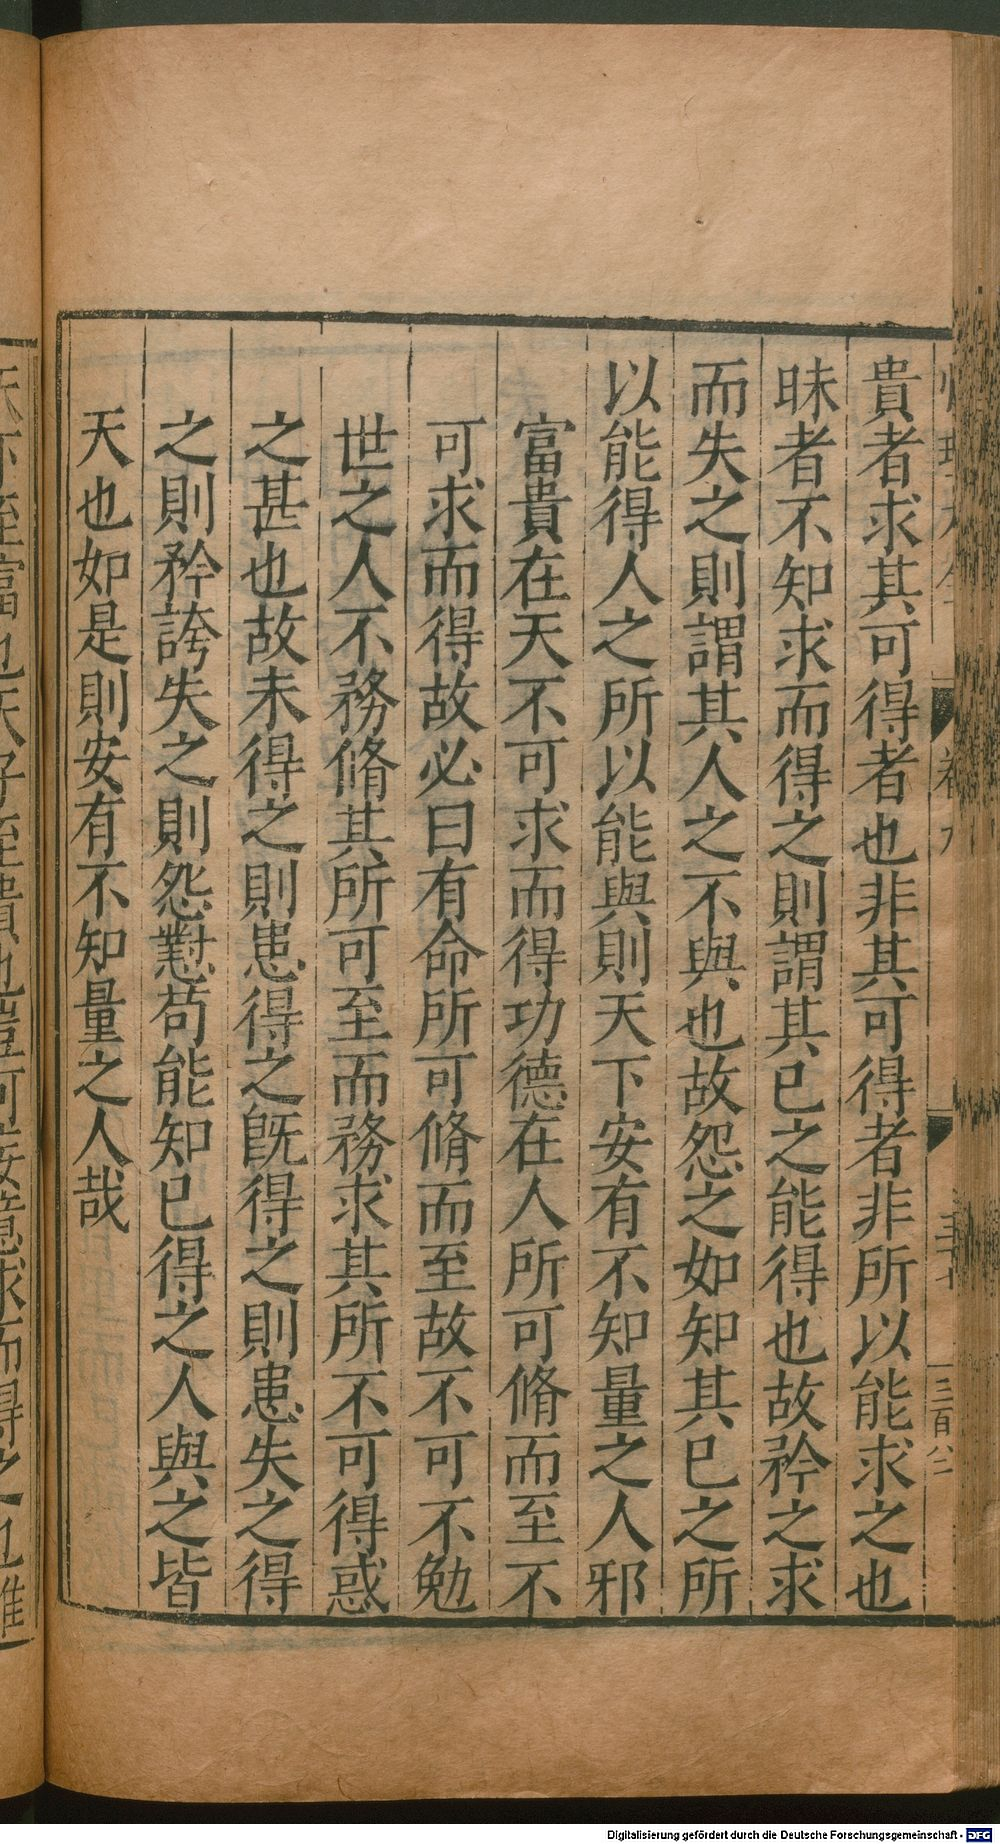 貴者求其可得者也非其可得者非所以能求之也
昧者不知求而得之則謂其已之能得也故矜之求
而失之則謂其人之不與也故怨之如知其已之所
以能得人之所以能與則天下安有不知量之人邪
富貴在天不可求而得功德在人所可脩而至不
可求而得故必曰有命所可脩而至故不可不勉
世之人不務脩其所可至而務求其所不可得惑
之甚也故未得之則患得之旣得之則患失之得
之則矜誇失之則怨懟苟能知已得之人與之皆
天也如是則安有不知量之人哉
Digitalisierung gefördert durch die Deutsche Forschungsgemeinschaft - DFG